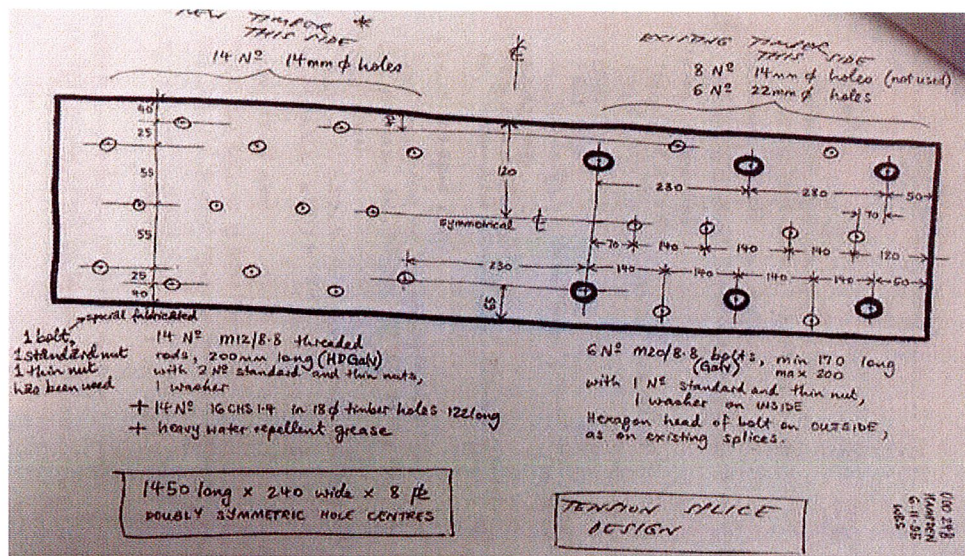 NEW TIMBER *
THIS SIDE
14 Nº 14mm ϕ holes
EXISTING TIMBER
THIS SIDE
8 Nº 14mm ϕ holes (not used)
6 Nº 22mm ϕ holes
40
25
55
55
25
40
120
230
280
50
70
symmetrical
70
140
140
140
120
230
140
140
140
140
50
65
special fabricated
1 bolt,
1 standard nut
1 thin nut
has been used
14 Nº M12/8.8 threaded
rods, 200mm long (HDGalv)
with 2 Nº standard and thin nuts,
1 washer
+ 14 Nº 16CHS 1.4 in 18ϕ timber holes 122 long
+ heavy water repellent grease
6 Nº M20/8.8 bolts, min 170 long
(Galv) max 200
with 1 Nº standard and thin nut,
1 washer on INSIDE
Hexagon head of bolt on OUTSIDE,
as on existing splices.
1450 long × 240 wide × 8
DOUBLY SYMMETRIC HOLE CENTRES
TENSION SPLICE
DESIGN